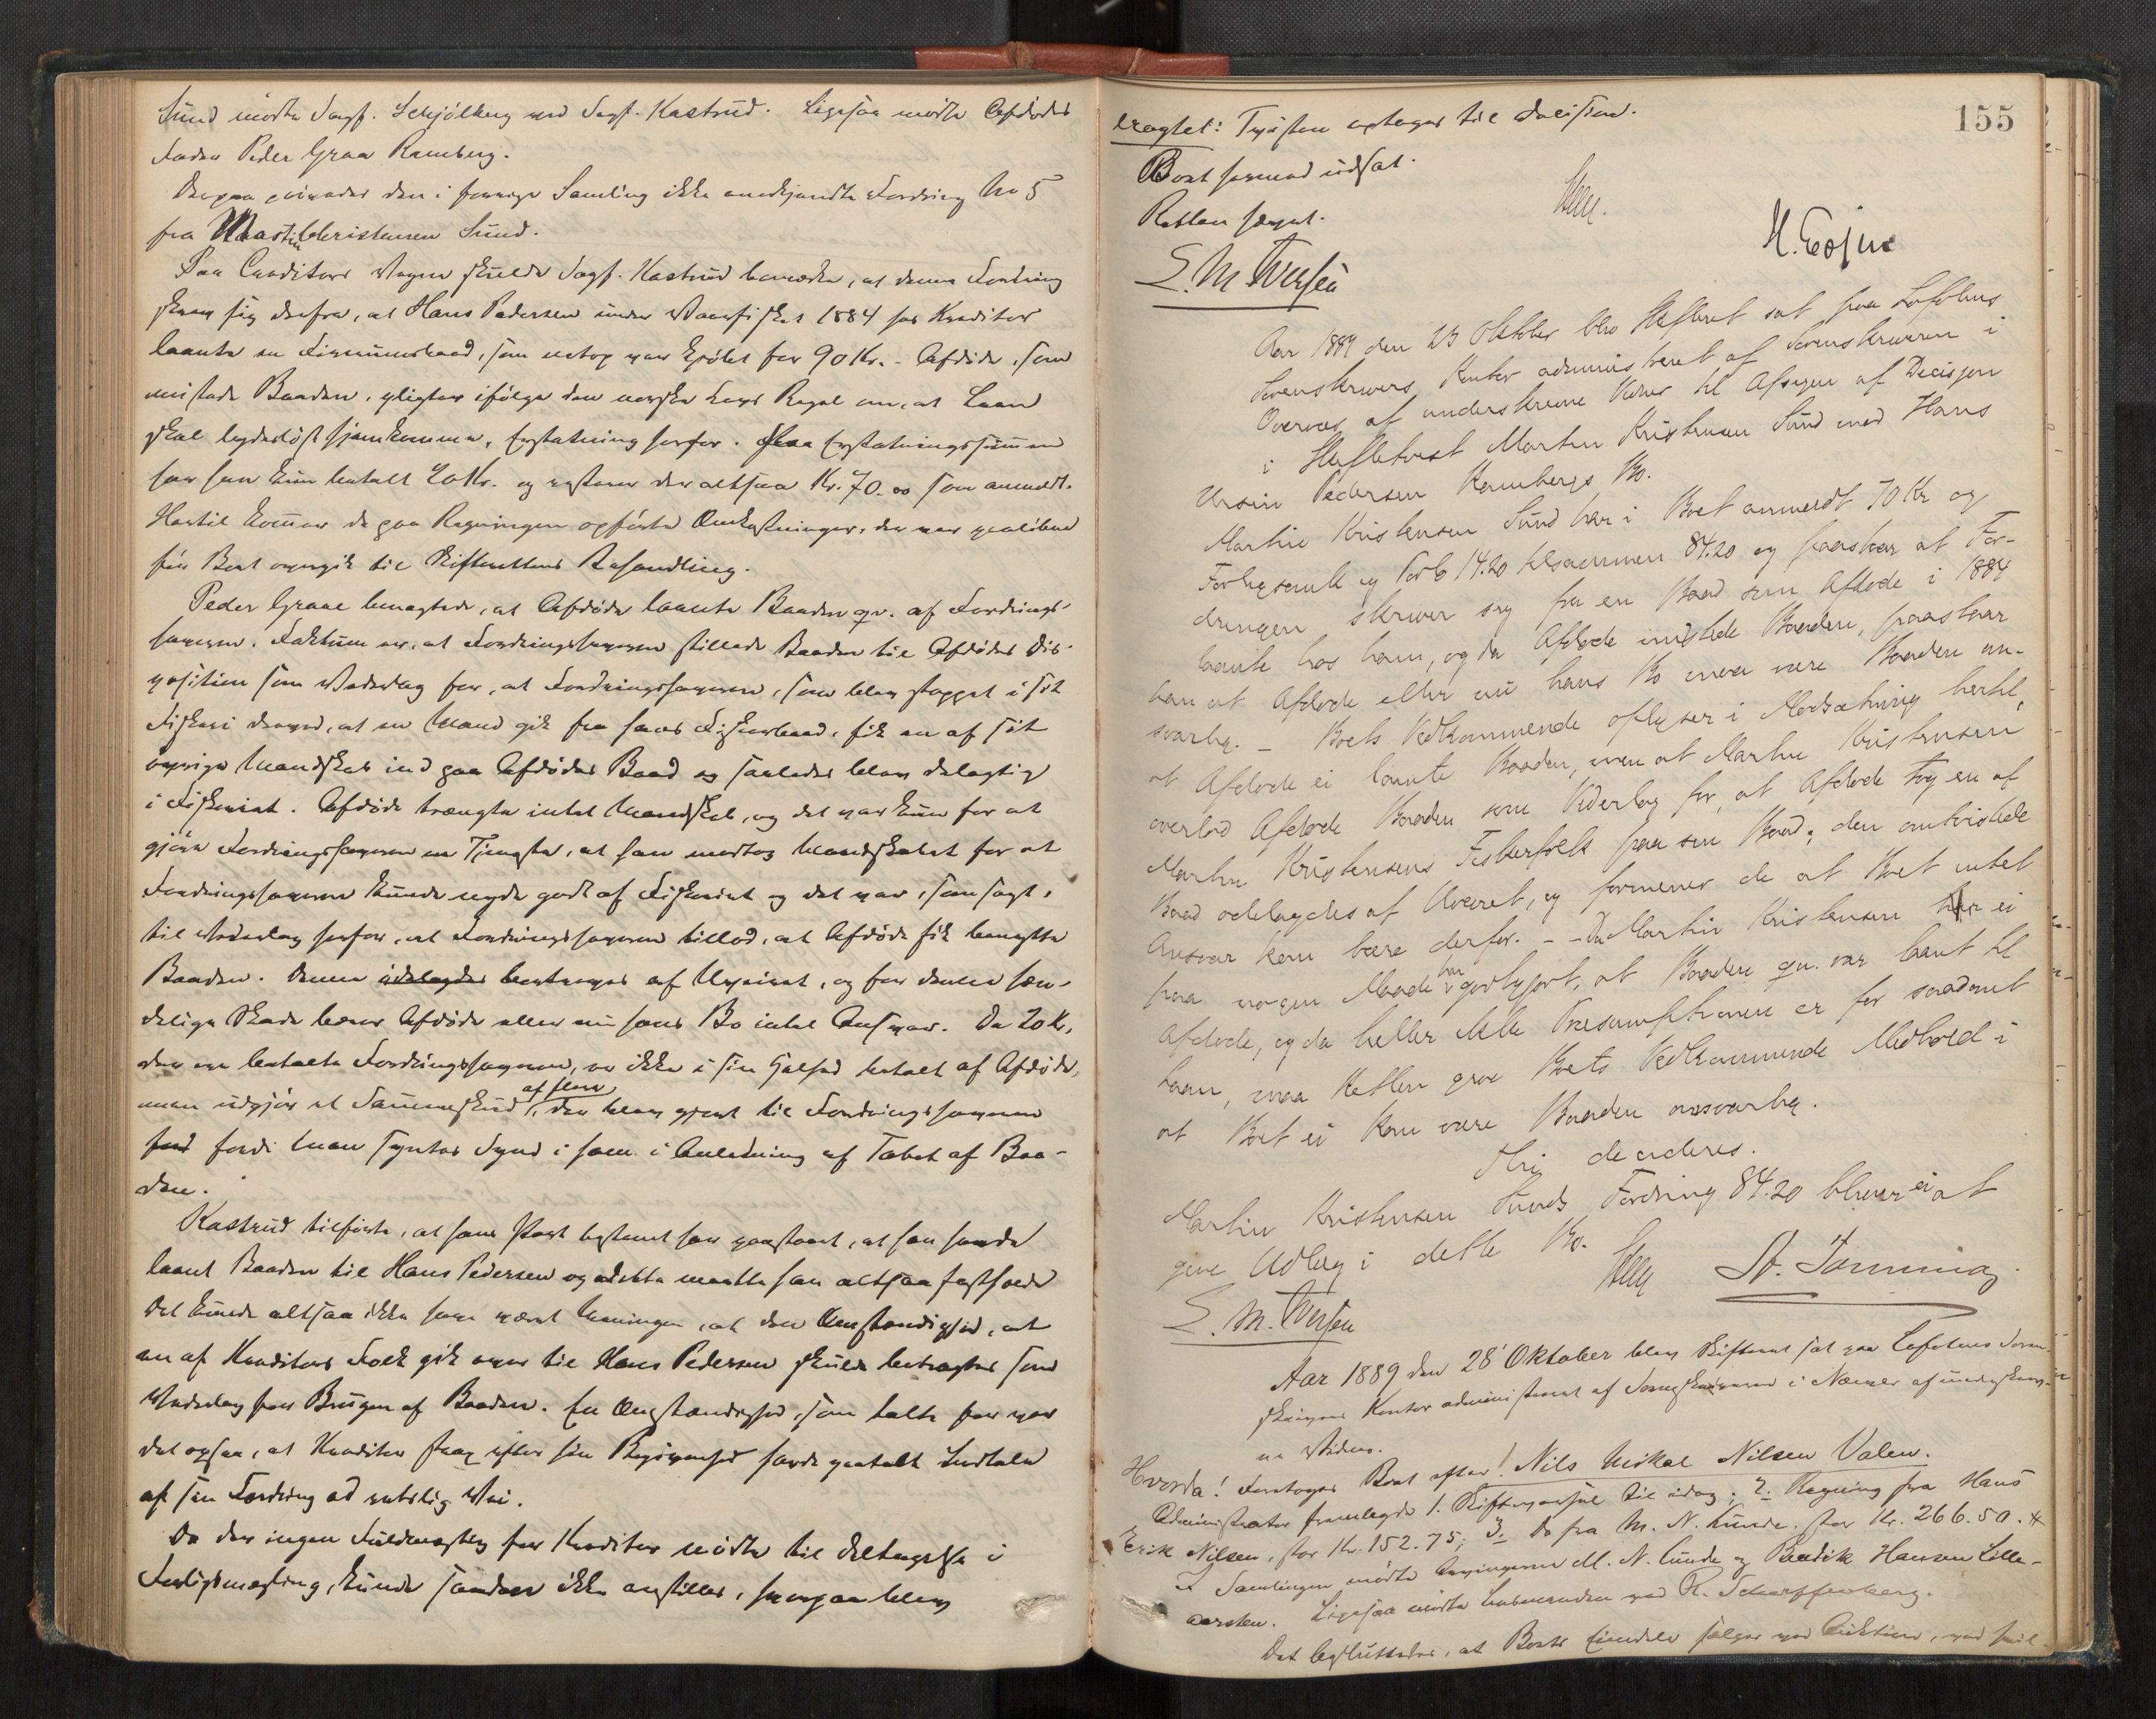 Sund mødte Sagf. Schjølberg ved Sagf. Kastrud. Ligesaa mødte Afdødes
Fader Peder Graa Ramberg.
Derpaa den i forrige Samling ikke anerkjendte Fordring No 5
fra Martin Christensen Sund.
Paa Creditors Vegne skulde Sagf. Kastrud bemærke, at denne Fordring
skrev sig derfra, at Hans Pedersen under Vaarfisket 1884 hos Kreditor
laante en Baad, som netop var kjøbt for 90 Kr. - Afdøde, som
mistede Baaden, pligter ifølge den norske Lovs Regel om, at Laan
skal lydesløst hjemkomme, Erstatning herfor. Paa Erstatningssummen
har han kun betalt 20 Kr. og resterer der altsaa Kr. 70.00 som anmeldt.
Hertil kommer de paa Regningen opførte Omkostninger, der var paaløbne
før Boet overgik til Skifterettens Behandling.
Peder Graae benægtede, at Afdøde laante Baaden qv. af Fordrings-
haveren. Faktum er, at Fordringshaveren stillede Baaden til Afdødes Dis-
position som Vederlag for, at Fordringshaveren, som blev stoppet i sit
Fiskeri derved, at en Mand gik fra hans Fiskerbaad, fik en af sit
øvrige Mandskab ind paa Afdødes Baad og saaledes blev delagtig
i Fiskeriet. Afdøde trængte intet Mandskab, og det var kun for at
gjøre Fordringshaveren en Tjeneste, at han modtog Mandskabet for at
Fordringshaveren kunde nyde godt af Fiskeriet og det var, som sagt,
til Vederlag herfor, at Fordringshaveren tillod, at Afdøde fik benytte
Baaden. Denne ødelagdes af Uveiret, og for denne hæn-
delige Skade bærer Afdøde eller nu hans Bo intet Ansvar. De 20 Kr.
der er betalte Fordringshaveren, er ikke i sin Helhed betalt af Afdøde,
men udgjør et Sammenskud af flere, der blev gjort til Fordringshaveren
fordi man syntes Synd i ham i Anledning af Tabet af Baa-
den.
Kastrud tilførte, at hans Part bestemt har paastaaet, at han havde
laant Baaden til Hans Pedersen og dette maatte han altsaa fastholde
Det kunde altsaa ikke have været Meningen, at den Omstændighed, at
en af Kreditors Folk gik over til Hans Pedersen skulde betragtes som
Vederlag for Brugen af Baaden. En Omstændighed, som talte for var
det ogsaa, at Kreditor strax efter sin havde paatalt
af sin Fordring ad retslig Vei.
Da der ingen Fuldmægtig for Kreditor mødte til Deltagelse i
Forligsmægling, kunde saadan ikke anstilles, hvorpaa blev
155
eragtet: Tvisten optages til Decision.
Boet forøvrigt udsat.
Retten hævet.
H. Cosjne
E. M. Iversen
Aar 1889 den 23 Oktober blev Skifteret sat paa Lofotens
Sorenskrivers Kontor administreret af Sorenskriveren i
Overvær af underskrevne Vidner til Afsigen af Decisjon
i Skiftetvist Martin Kristensen Sund mod Hans
Ursin Pedersen Rambergs Bo.
Martin Kristensen Sund har i Boet anmeldt 70 Kr og
14.20 tilsammen 84.20 og paastaar at For-
dringen skriver sig fra en Baad som Afdøde i 1884
laante hos ham, og da Afdøde mistede Baaden, paastaar
han at Afdøde eller nu hans Bo maa være Baaden an-
svarlig. - Boets Vedkommende oplyser i Modsætning hertil,
at Afdøde ei laante Baaden, men at Martin Kristensen
overlod Afdøde Baaden som Vederlag for, at Afdøde tog en af
Martin Kristensens Fiskerfolk paa sin Baad; den omtvistede
Baad ødelagdes af Uveiret, og formener de at Boet intet
Ansvar kan bære derfor. - Da Martin Kristensen ei
paa nogen Maade har godtgjort, at Baaden qv. var laant til
Afdøde, og da heller ikke Præsumptionen er for saadant
Laan, maa Retten give Boets Vedkommende Medhold i
at Boet ei kan være Baaden ansvarlig.
Thi decideres.
Martin Kristensen Sunds Fordring 84.20 bliver ei at
give Udlæg i dette Bo.
E. M. Iversen
Aar 1889 den 28' Oktober blev Skifteret sat paa Lofotens Soren-
skrivers Kontor administreret af Sorenskriveren i Nærvær af underskrev-
ne Vidner.
Hvorda! Foretoges Boet efter! Nils Mikal Nilsen Valen.
Administrator fremlagde 1. til idag; 2. Regning fra Hans
Erik Nilsen, stor Kr. 152.75; 3. Do fra M. N. Lunde, stor Kr. 266.50.
I Samlingen mødte Arvingerne M. N. Lunde og Bendik Hansen Lille-
aarsten. Ligesaa mødte ved R. Scharffenberg.
Det besluttedes, at Boets Eiendele sælges ved Auktion, ved